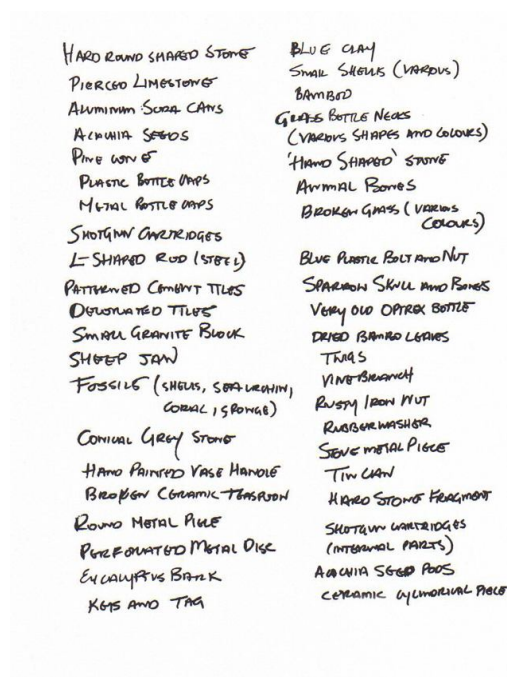 HARD ROUND SHAPED STONE
PIERCED LIMESTONE
ALUMINUM SODA CANS
ACACHIA SEEDS
PINE CONE
PLASTIC BOTTLE CAPS
METAL BOTTLE CAPS
SHOTGUN CARTRIDGES
L-SHAPED ROD (STEEL)
PATTERNED CEMENT TILES
DECORATED TILES
SMALL GRANITE BLOCK
SHEEP JAW
FOSSILS (SHELLS, SEA URCHIN,
CORAL, SPONGE)
CONICAL GREY STONE
HAND PAINTED VASE HANDLE
BROKEN CERAMIC TEASPOON
ROUND METAL PIECE
PERFORATED METAL DISC
EUCALYPTUS BARK
KEYS AND TAG
BLUE CLAY
SMALL SHELLS (VARIOUS)
BAMBOO
GLASS BOTTLE NECKS
(VARIOUS SHAPES AND COLOURS)
'HAND SHAPED' STONE
ANIMAL BONES
BROKEN GLASS (VARIOUS
COLOURS)
BLUE PLASTIC BOLT AND NUT
SPARROW SKULL AND BONES
VERY OLD OPTREX BOTTLE
DRIED BAMBOO LEAVES
TWIGS
VINE BRANCH
RUSTY IRON NUT
RUBBER WASHER
METAL PIECE
TIN CAN
HARD STONE FRAGMENT
SHOTGUN CARTRIDGES
(INTERNAL PARTS)
ACACHIA SEED PODS
CERAMIC CYLINDRICAL PIECE